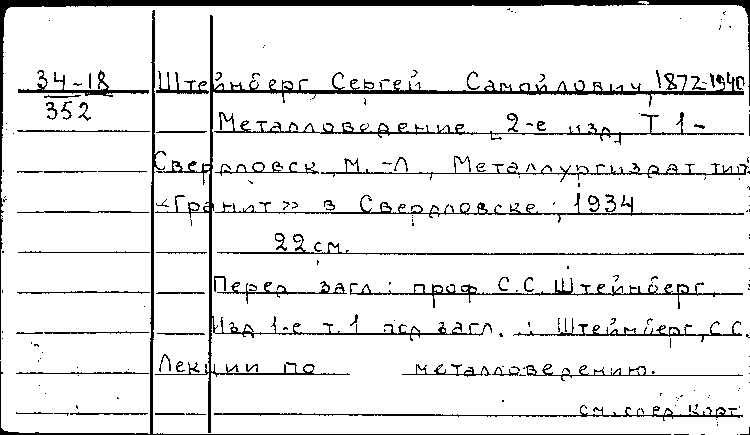 34-18
352
Штейнберг, Сергей Самойлович, 1872-1940
Металловедение [2-е изд] Т 1-
Свердловск, М.-Л., Металлургиздат, тип
«Гранит» в Свердловске, 1934
22 см.
Перед загл: проф С.С. Штейнберг.
Изд 1-е т.1 под загл.: Штейнберг, С.С.
Лекции по металловедению.
см. след карт